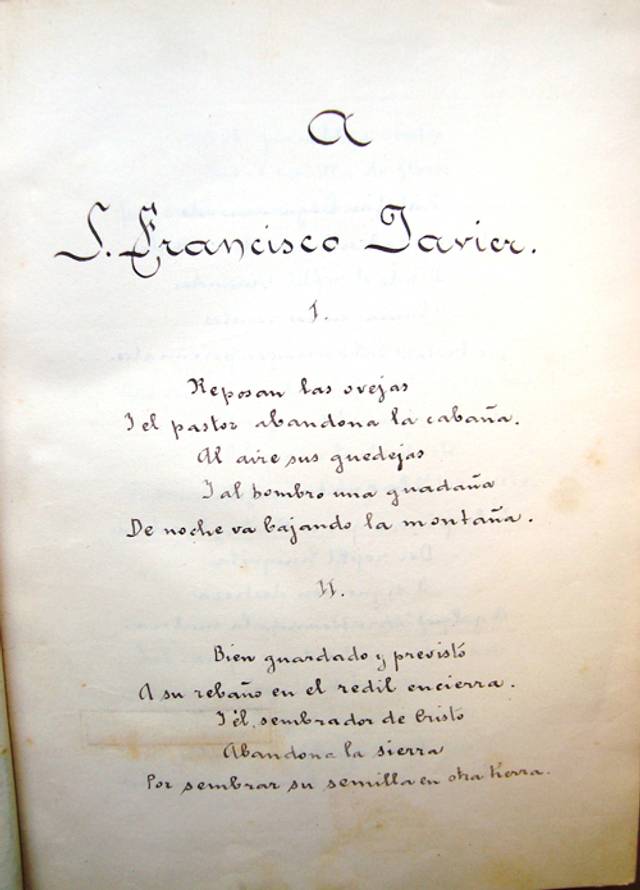 A
S. Francisco Javier.
I.
Reposan las ovejas
I el pastor abandona la cabaña.
Al aire sus guedejas
I al hombro una guadaña
De noche va bajando la montaña.
II.
Bien guardado y previstó
A su rebaño en el redil encierra.
I él, sembrador de Cristo
Abandona la sierra
Por sembrar su semilla en otra tierra.